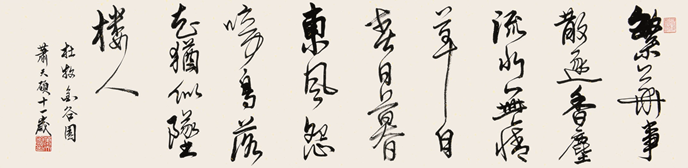 繁華事
散逐香塵
流水無情
草自
春日暮
東風怨
啼鳥落
花猶似墜
楼人
杜牧金谷園
蕭天碩十一歲